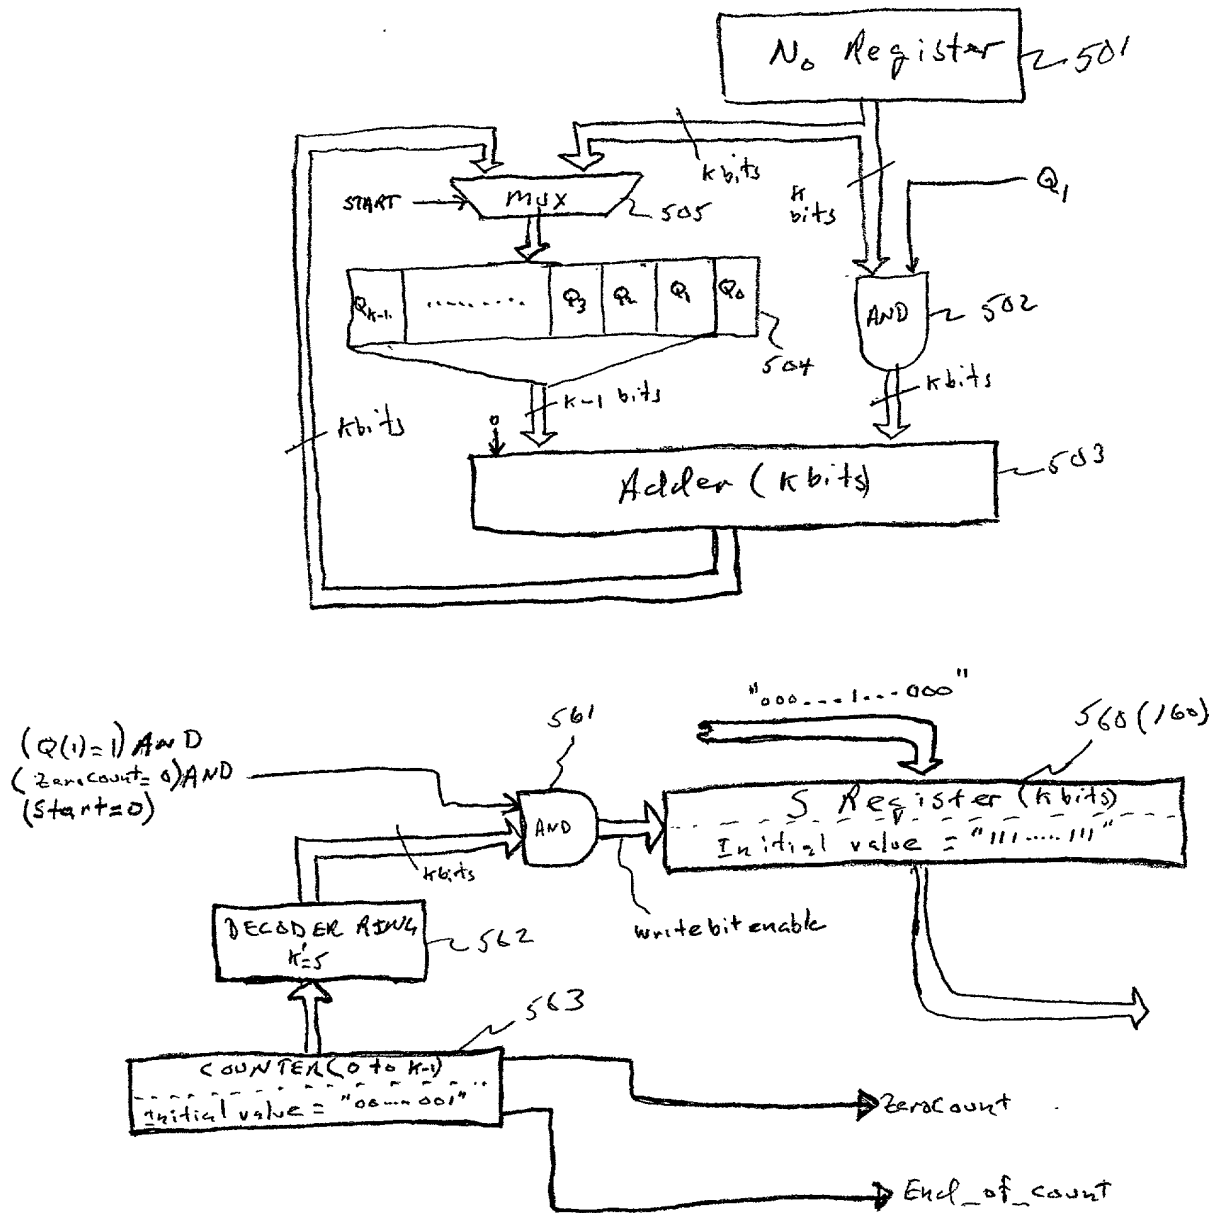 N₀ Register
501
K bits
K bits
Q₁
START
MUX
505
Qₖ₋₁
.........
Q₃
Q₂
Q₁
Q₀
504
AND
502
K-1 bits
K bits
K bits
0
Adder (K bits)
503
"000....1...000"
560 (160)
561
(Q(1)=1) AND
(ZeroCount=0) AND
(Start=0)
AND
S Register (K bits)
Initial value = "111.....111"
K bits
write bit enable
DECODER RING
K'=5
562
563
COUNTER (0 to K-1)
Initial value = "00....001"
ZeroCount
End_of_count